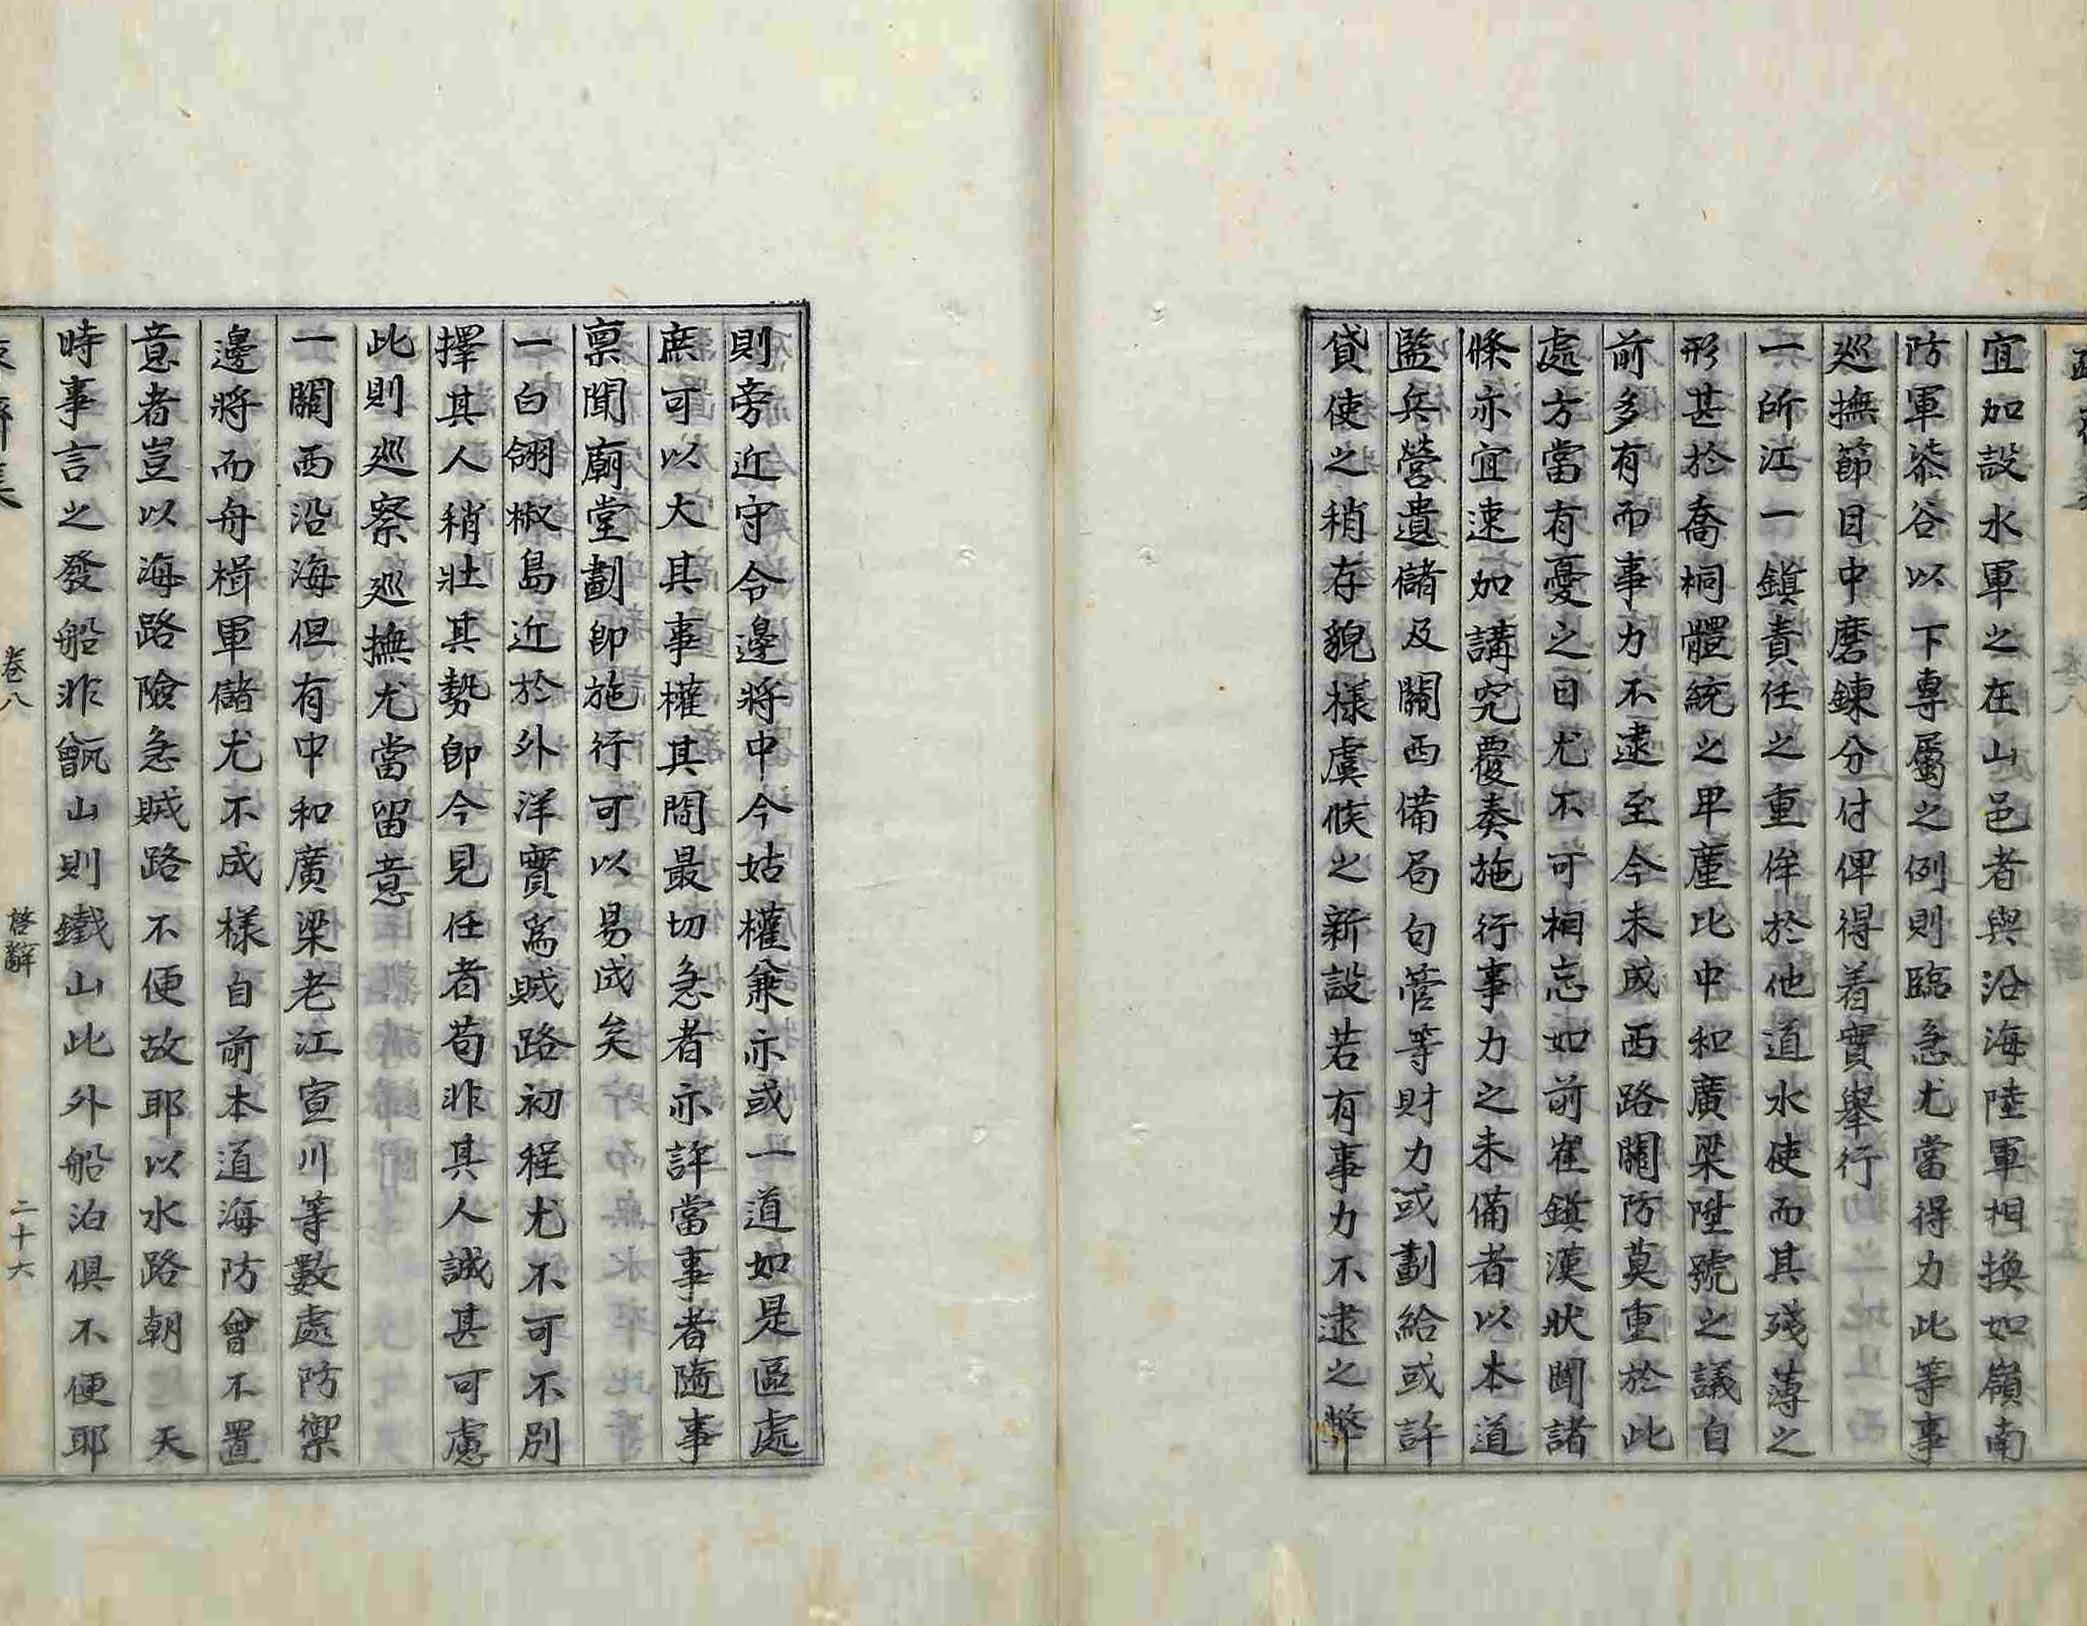 宜加設水軍之在山邑者與沿海陸軍相換如嶺南
防軍漆谷以下專屬之例則臨急尤當得力此等事
巡撫節目中磨鍊分付俾得着實擧行
一所江一鎭責任之重侔於他道水使而其殘薄之
形甚於喬桐體統之卑廑比中和廣梁陞號之議自
前多有而事力不逮至今未成西路關防莫重於此
處方當有憂之日尤不可相忘如前崔鎭漢狀聞諸
條亦宜速加講究覆奏施行事力之未備者以本道
監兵營遺儲及關西備局句管等財力或劃給或許
貸使之稍存貌樣虞候之新設若有事力不逮之弊
則旁近守令邊將中今姑權兼亦或一道如是區處
庶可以大其事權其間最切急者亦許當事者隨事
稟聞廟堂劃卽施行可以易成矣
一白翎椒島近於外洋實爲賊路初程尤不可不別
擇其人稍壯其勢卽今見任者苟非其人誠甚可慮
此則巡察巡撫尤當留意
一關西沿海但有中和廣梁老江宣川等數處防禦
邊將而舟楫軍儲尤不成樣自前本道海防曾不置
意者豈以海路險急賊路不便故耶以水路朝 天
時事言之發船非甑山則鐵山此外船泊俱不便耶
卷八
啓辭
二十六